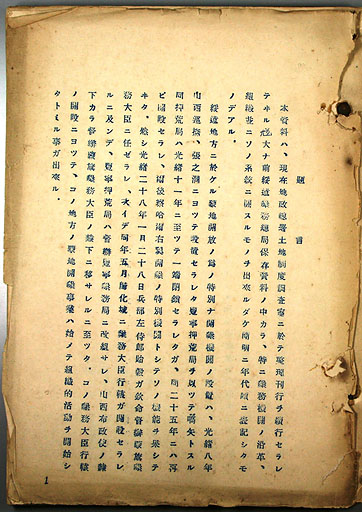 題言
本資料ハ、現在地政總署土地制度調査室ニ於テ整理刊行ヲ續行セラレ
テヰル尨大ナ前綏遠墾務總局保存資料ノ中カラ、特ニ墾務機關ノ沿革、
組織並ニソノ系統ニ關スルモノヲ出來ルダケ簡明ニ年代順ニ表記シタモ
ノデアル。
綏遠地方ニ於ケル墾地開放ノ爲ノ特別ナ開墾機關ノ設置ハ、光緒八年
山西巡撫、張之洞ニヨツテ設置セラレタ豐寧押荒局ヲ以テ嚆矢トスル
同押荒局ハ光緒十一年ニ至ツテ一端閉鎖セラレタガ、同二十五年ニハ再
ビ開設セラレ、爾後察哈爾右翼開墾ノ特別機關トシテソノ機能ヲ果シテ
ヰタ。然シ光緒二十八年一月二十八日兵部左侍郎貽穀ガ欽命督辦蒙旗墾
務大臣ニ任ゼラレ、次イデ同年五月歸化城ニ墾務大臣行轅ガ開設セラレ
ルニ及ンデ、豐寧押荒局ハ督辦豐寧墾務局ニ改組サレ、山西布政使ノ隷
下カラ督辦蒙旗墾務大臣ノ隷下ニ移サレルニ至ツタ、コノ墾務大臣行轅
ノ開設ニヨツテ、コノ地方ノ墾地開墾事業ハ始メテ組織的活動ヲ開始シ
タトミル事ガ出來ル。
1